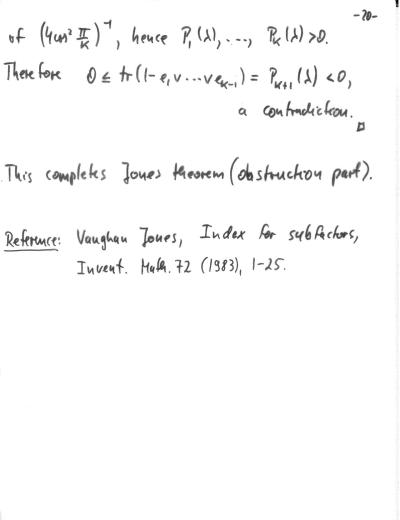 -20-
of (4cos² π/k)⁻¹, hence P₁(λ), ..., Pₖ(λ) > 0.
Therefore 0 ≤ tr(1-e₁∨...∨eₖ₋₁) = Pₖ₊₁(λ) < 0,
a contradiction.
□
This completes Jones theorem (obstruction part).
Reference: Vaughan Jones, Index for subfactors,
Invent. Math. 72 (1983), 1-25.